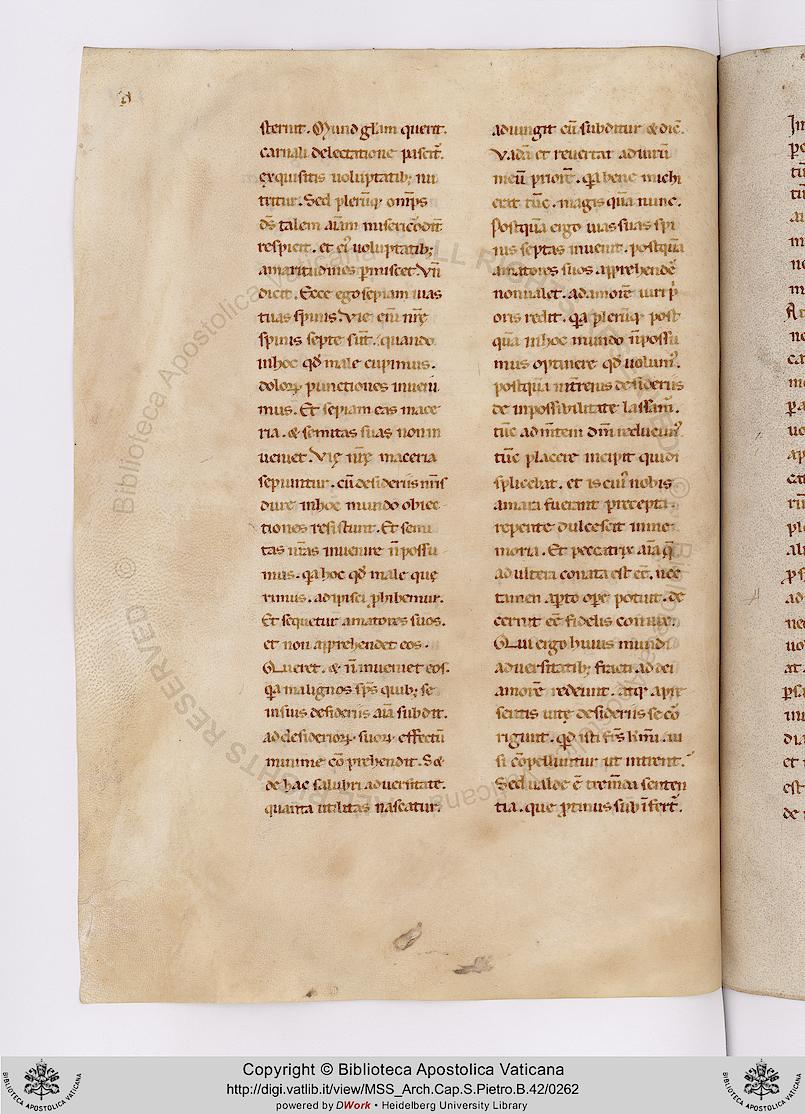 sternit. Mund gl̃am querit.
carnali delectatione pascit᷑.
exquisitis uoluptatib; nu
tritur. Sed plerũq; omp̃s
d̃s talem aĩam misericordit̃
respicit. et ei᷒ uoluptatib;
amaritudines p̃miscet. Vñ
dicit. Ecce ego sepiam uias
tuas spinis. Vie eiñ nr̃ę
spinis septe sũt. quando
inhoc qd̃ male cupimus.
dolorꝝ punctiones inueni
mus. Et sepiam eas mace
ria. & semitas suas non in
ueniet. Vię nr̃ę maceria
sepiuntur. cũ desideriis nr̃is
dure inhoc mundo obiec
tiones resistunt. Et semi
tas nr̃as inuenire ñ possu
mus. q̃a hoc qd̃ male que
rimus. adipisci ꝓhibemur.
Et sequetur amatores suos.
et non apprehendet eos.
Queret. & ñ inueniet eos.
q̃a malignos sp̃s quib; se
insuis desideriis aĩa subdit.
ad desideriorꝝ suorꝝ effectũ
minime cõprehendit. S&
de hac salubri aduersitate.
quanta utilitas nascatur.
adiungit cũ subditur & dic̃.
Vadã et reuertar ad uirũ
meũ priorẽ. q̃a bene michi
erat tũc. magis quã nunc.
Postquã ergo uias suas spi
nis septas inuenit. postquã
amatores suos apprehendẽ
non ualet. ad amorẽ uiri p̃
oris redit. q̃a plerũq; post
quã inhoc mundo ñ possu
mus optinere qd̃ uolum᷒.
postquã int̃renis desideriis
de inpossibilitate lassam᷒.
tũc ad m̃tem dñm reducim᷒.
tũc placere incipit qui di
splicebat. et is cui᷒ nobis
amara fuerant precepta.
repente dulcescit inme
moria. Et peccatrix aĩa q̃
adultera conata est eẽ. nec
tamen apto oꝑe potuit. de
cernit eẽ fidelis coniux.
Qui ergo huius mundi
aduersitatib; fracti ad dei
amorẽ redeunt. atq; a p̃se
sentis uitę desideriis se cõ
rigunt. qd̃ isti fr̃s k̃mi. ni
si cõpelluntur ut intrent.
Sed ualde ẽ tremẽda senten
tia. que ꝓtinus subĩfert᷑.
Copyright © Biblioteca Apostolica Vaticana
http://digi.vatlib.it/view/MSS_Arch.Cap.S.Pietro.B.42/0262
powered by DWork • Heidelberg University Library